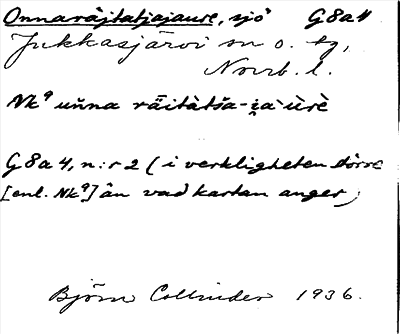 Onnaräjtatjajaure, sjö G8a4
Jukkasjärvi sn o. tg,
Norrb. l.
Nk⁹ uṅ̄na rāi̯tàtša-i̯a·ùrè
G 8a 4, n:r 2 (i verkligheten större
[enl. Nk⁹] än vad kartan anger)
Björn Collinder 1936.